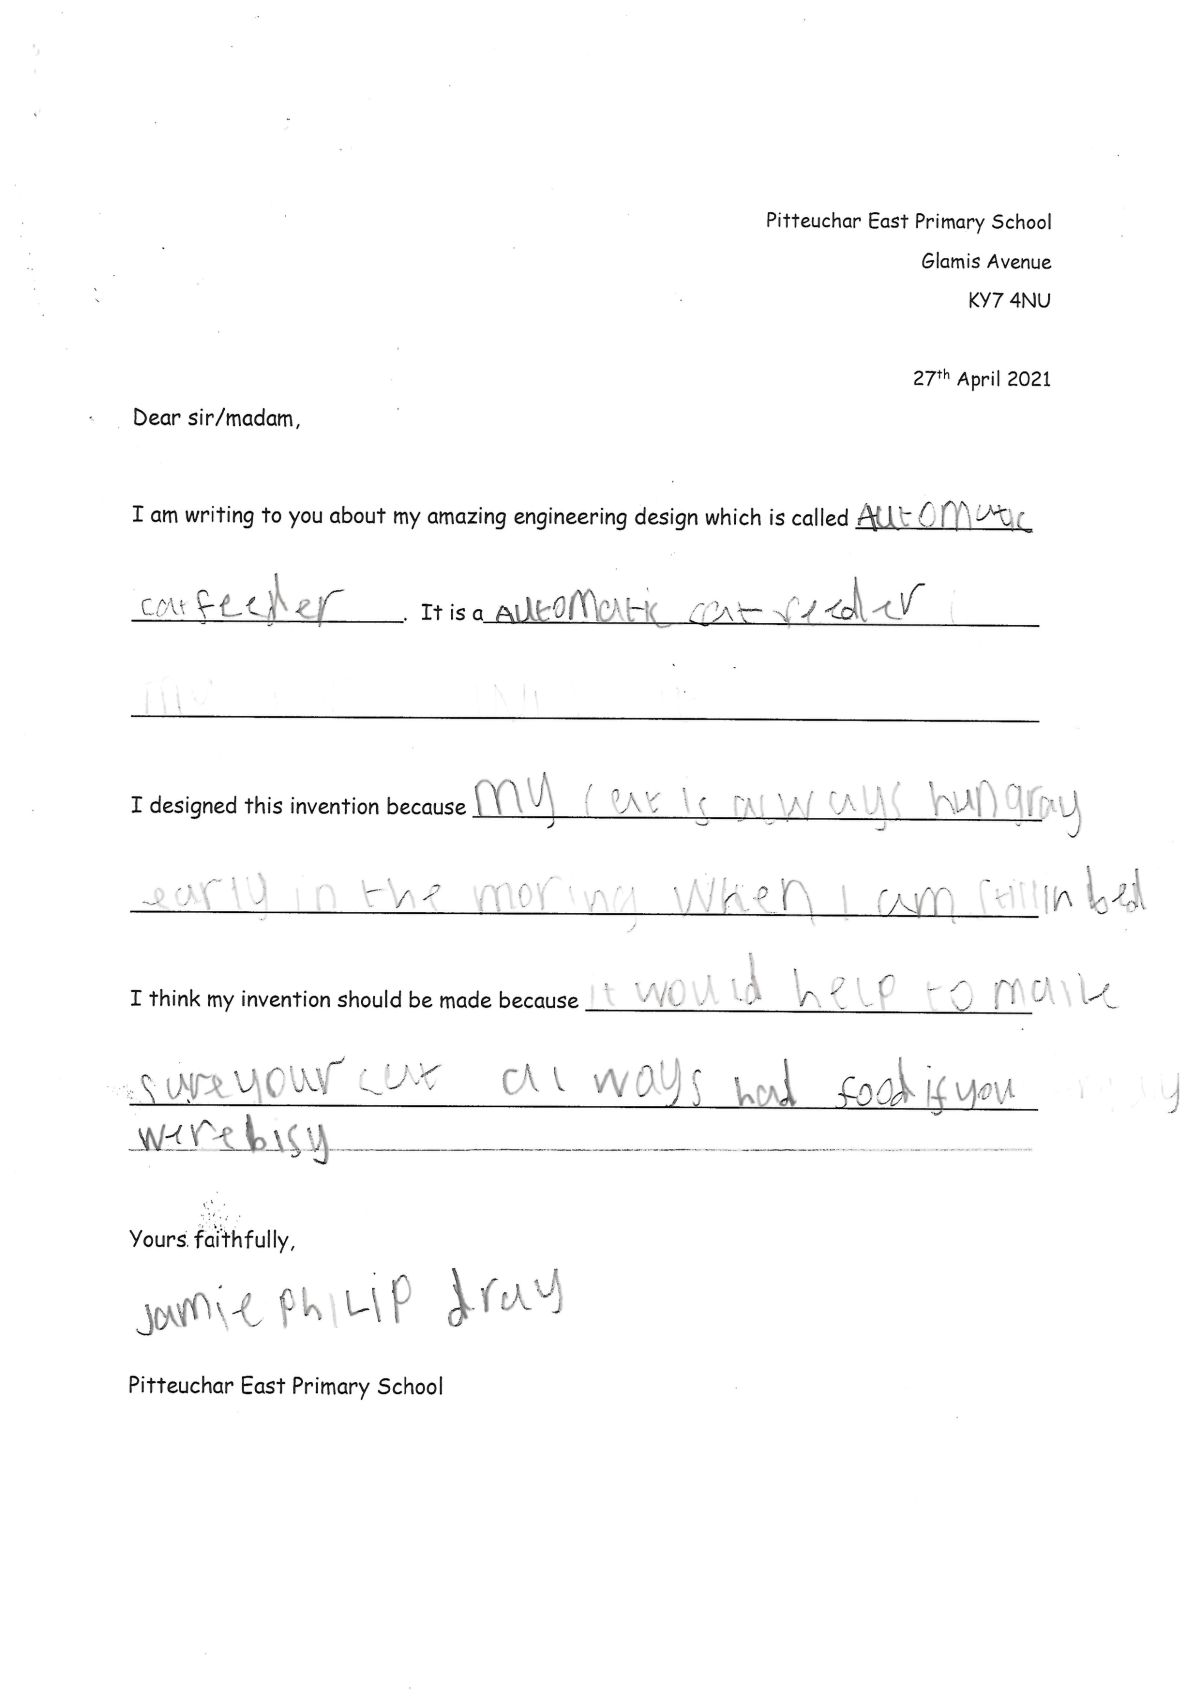 Pitteuchar East Primary School
Glamis Avenue
KY7 4NU
27th April 2021
Dear sir/madam,
I am writing to you about my amazing engineering design which is called Automatic
cat feeder. It is a Automatic cat feeder
I designed this invention because My cat is always hungray
early in the moring when I am still in bed
I think my invention should be made because it would help to make
sure your cat always had food if you
were bisy
Yours faithfully,
Jamie Philip dray
Pitteuchar East Primary School